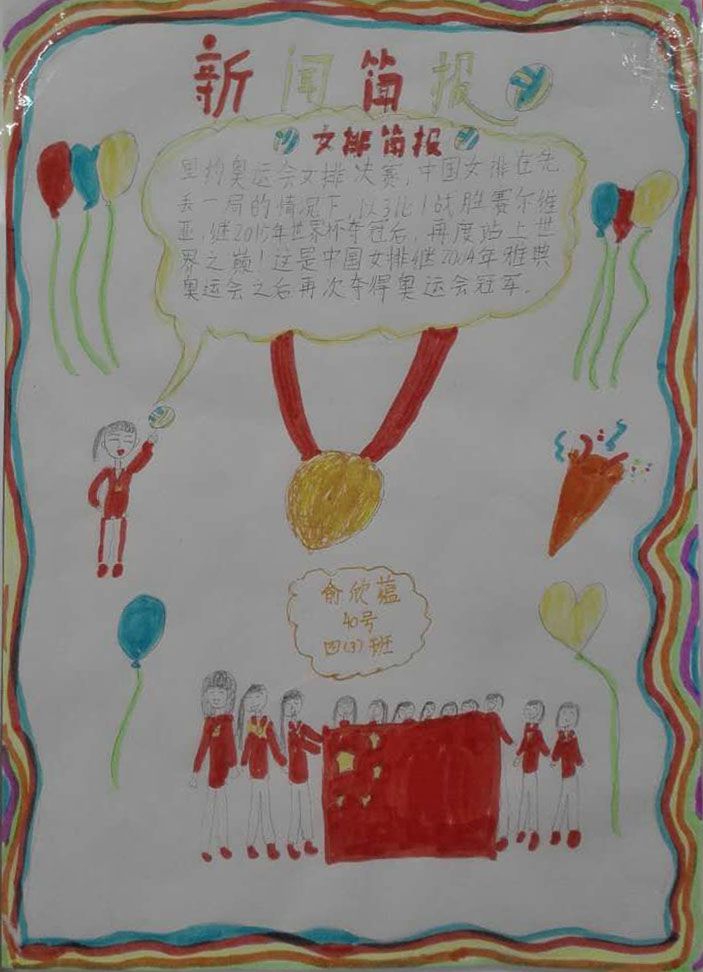 新闻简报
女排简报
里约奥运会女排决赛，中国女排在先
丢一局的情况下，以3比1战胜赛尔维
亚，继2015年世界杯夺冠后，再度站上世
界之巅！这是中国女排继2004年雅典
奥运会之后再次夺得奥运会冠军．
俞欣蕴
40号
四(3)班